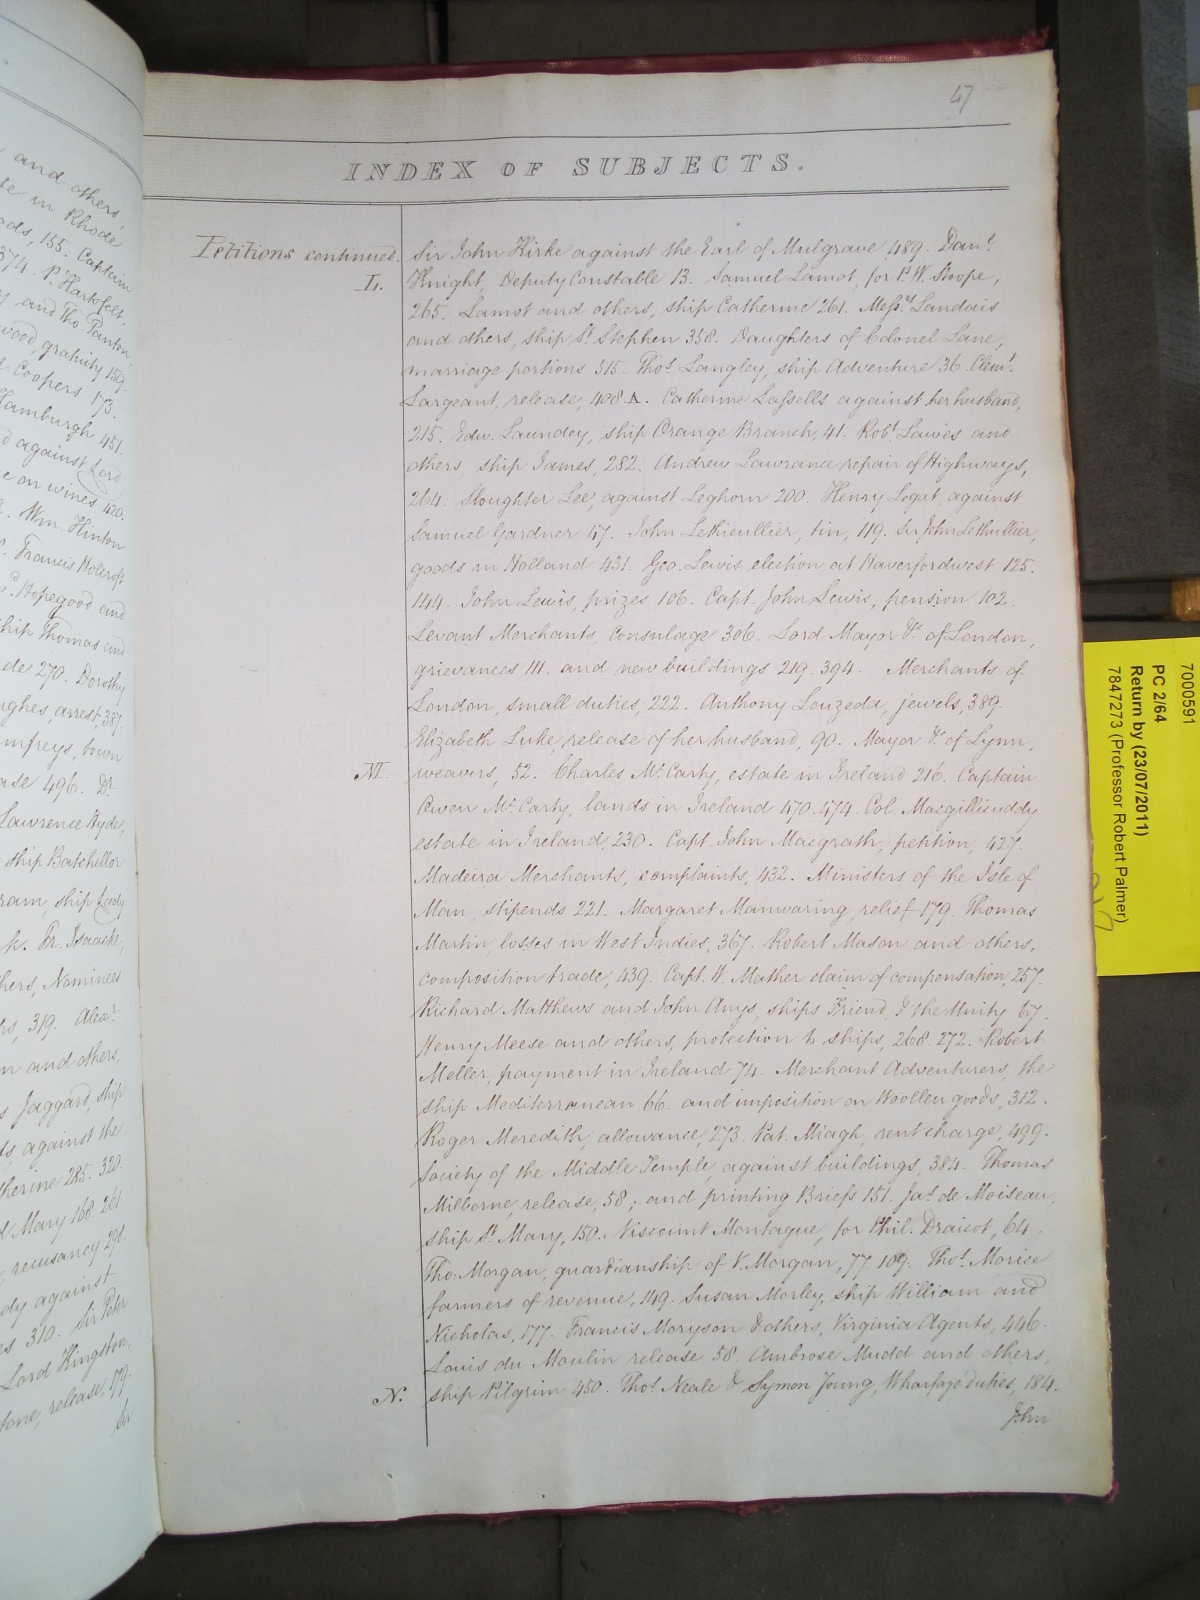 and others,
te in Rhode
ods, 155. Captain
574. P. Harksfelt,
y and Tho. Panton,
wood, gratuity 159.
d Coopers 173.
Hamburgh 451.
d against Lord
ce on wines 420.
Wm. Hinton
Francis Holcroft
Hopegood and
hip Thomas and
de 270. Dorothy
ughes, arrest, 387.
mfreys, town
ase 496. Dr.
Lawrence Hyde,
ship Batchellor
ram, ship Lady
k. Fr. Isaacke,
hers, Nominees
ps, 319. Alexr.
n and others,
s Jaggard, ship
ds against the
therine 285. 320.
d Mary 168. 261.
recusancy 298.
dy against
es 310. Sir Peter
Lord Kingston,
fane, release 179.
Sir
47
INDEX OF SUBJECTS.
Petitions continued.
Sir John Kirke against the Earl of Mulgrave 489. Danl.
L.
Knight, Deputy Constable 13. Samuel Lamot, for P. W. Stoope,
265. Lamot and others, ship Catherine 261. Messrs. Landais
and others, ship St. Stephen 358. Daughters of Colonel Lane,
marriage portions 315. Thos. Langley, ship Adventure 36. Clemt.
Largeant, release, 408 A. Catherine Lassells against her husband,
215. Edw. Laundey, ship Orange Branch, 41. Robt. Lawes and
others, ship James, 282. Andrew Lawrance repair of Highways,
264. Sloughter Lee, against Leghorn 200. Henry Legat, against
Samuel Gardner 47. John Lethieullier, tin, 119. Sir John Lethullier,
goods in Holland 431. Geo. Lewis, election at Haverfordwest 125.
144. John Lewis, prizes 106. Capt. John Lewis, pension 102.
Levant Merchants, Consulage 306. Lord Mayor &c. of London,
grievances 111. and new buildings 219. 394. Merchants of
London, small duties, 222. Anthony Louzeda, jewels, 389.
Elizabeth Luke, release of her husband, 90. Mayor &c. of Lynn,
M.
weavers, 52. Charles Mc. Carty, estate in Ireland 216. Captain
Owen Mc. Carty, lands in Ireland 470. 474. Col. Macgillieuddy
estate in Ireland, 230. Capt. John Macgrath, petition, 427.
Madeira Merchants, complaints, 432. Ministers of the Isle of
Man, stipends 221. Margaret Manwaring, relief 179. Thomas
Martin, losses in West Indies, 367. Robert Mason and others,
composition trade, 439. Capt. H. Mather claim of compensation, 257.
Richard Matthews and John Amys, ships Friend, & the Unity 67.
Henry Meese and others, protection to ships, 268. 272. Robert
Meller, payment in Ireland 74. Merchant Adventurers, the
ship Mediterranean 66. and imposition on Woollen goods, 312.
Roger Meredith, allowance, 273. Pat. Miagh, rent charge, 499.
Society of the Middle Temple, against buildings, 384. Thomas
Milborne, release, 58; and printing Briefs 151. Jas. de Moiseau,
ship St. Mary, 150. Viscount Montague, for Phil. Draicot, 64.
Tho. Morgan, guardianship of V. Morgan, 77. 109. Thos. Morice
farmers of revenue, 149. Susan Morley, ship William and
Nicholas, 177. Francis Moryson & others, Virginia Agents, 446.
Louis du Moulin release 58. Ambrose Mudd and others,
N.
ship Pilgrim 450. Thos. Neale & Symon Young, Wharfage duties, 184.
John
7000591
PC 2/64
Return by (23/07/2011)
7847273 (Professor Robert Palmer)